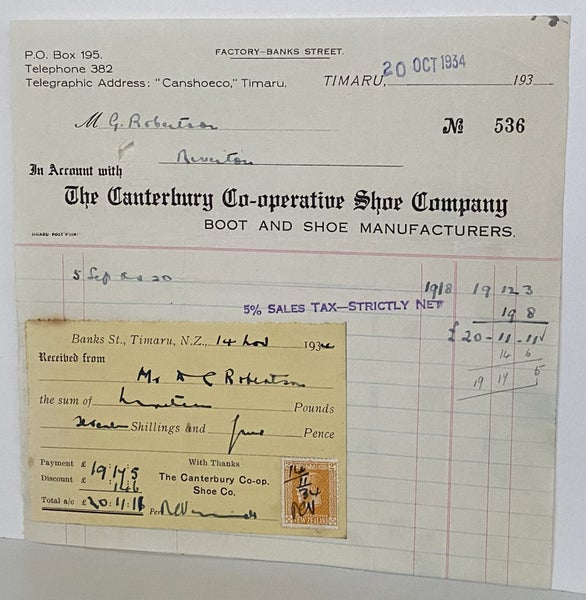 FACTORY—BANKS STREET.
P.O. Box 195.
Telephone 382
Telegraphic Address: "Canshoeco," Timaru.
TIMARU, 20 OCT 1934 193
M G. Robertson
No 536
Riverton
In Account with
The Canterbury Co-operative Shoe Company
BOOT AND SHOE MANUFACTURERS.
TIMARU POST PRINT
5 Sep 19/8 19 12 3
5% SALES TAX—STRICTLY NET 19 8
£ 20-11-11
14 6
19 17 5
Banks St., Timaru, N.Z., 14 Nov 1934
Received from
Mr A G Robertson
the sum of Nineteen Pounds
Seventeen Shillings and five Pence
Payment £ 19:17:5
Discount £ 14:6
Total a/c £ 20:11:11
With Thanks
The Canterbury Co-op.
Shoe Co.
Per
14
11
34
NEW ZEALAND